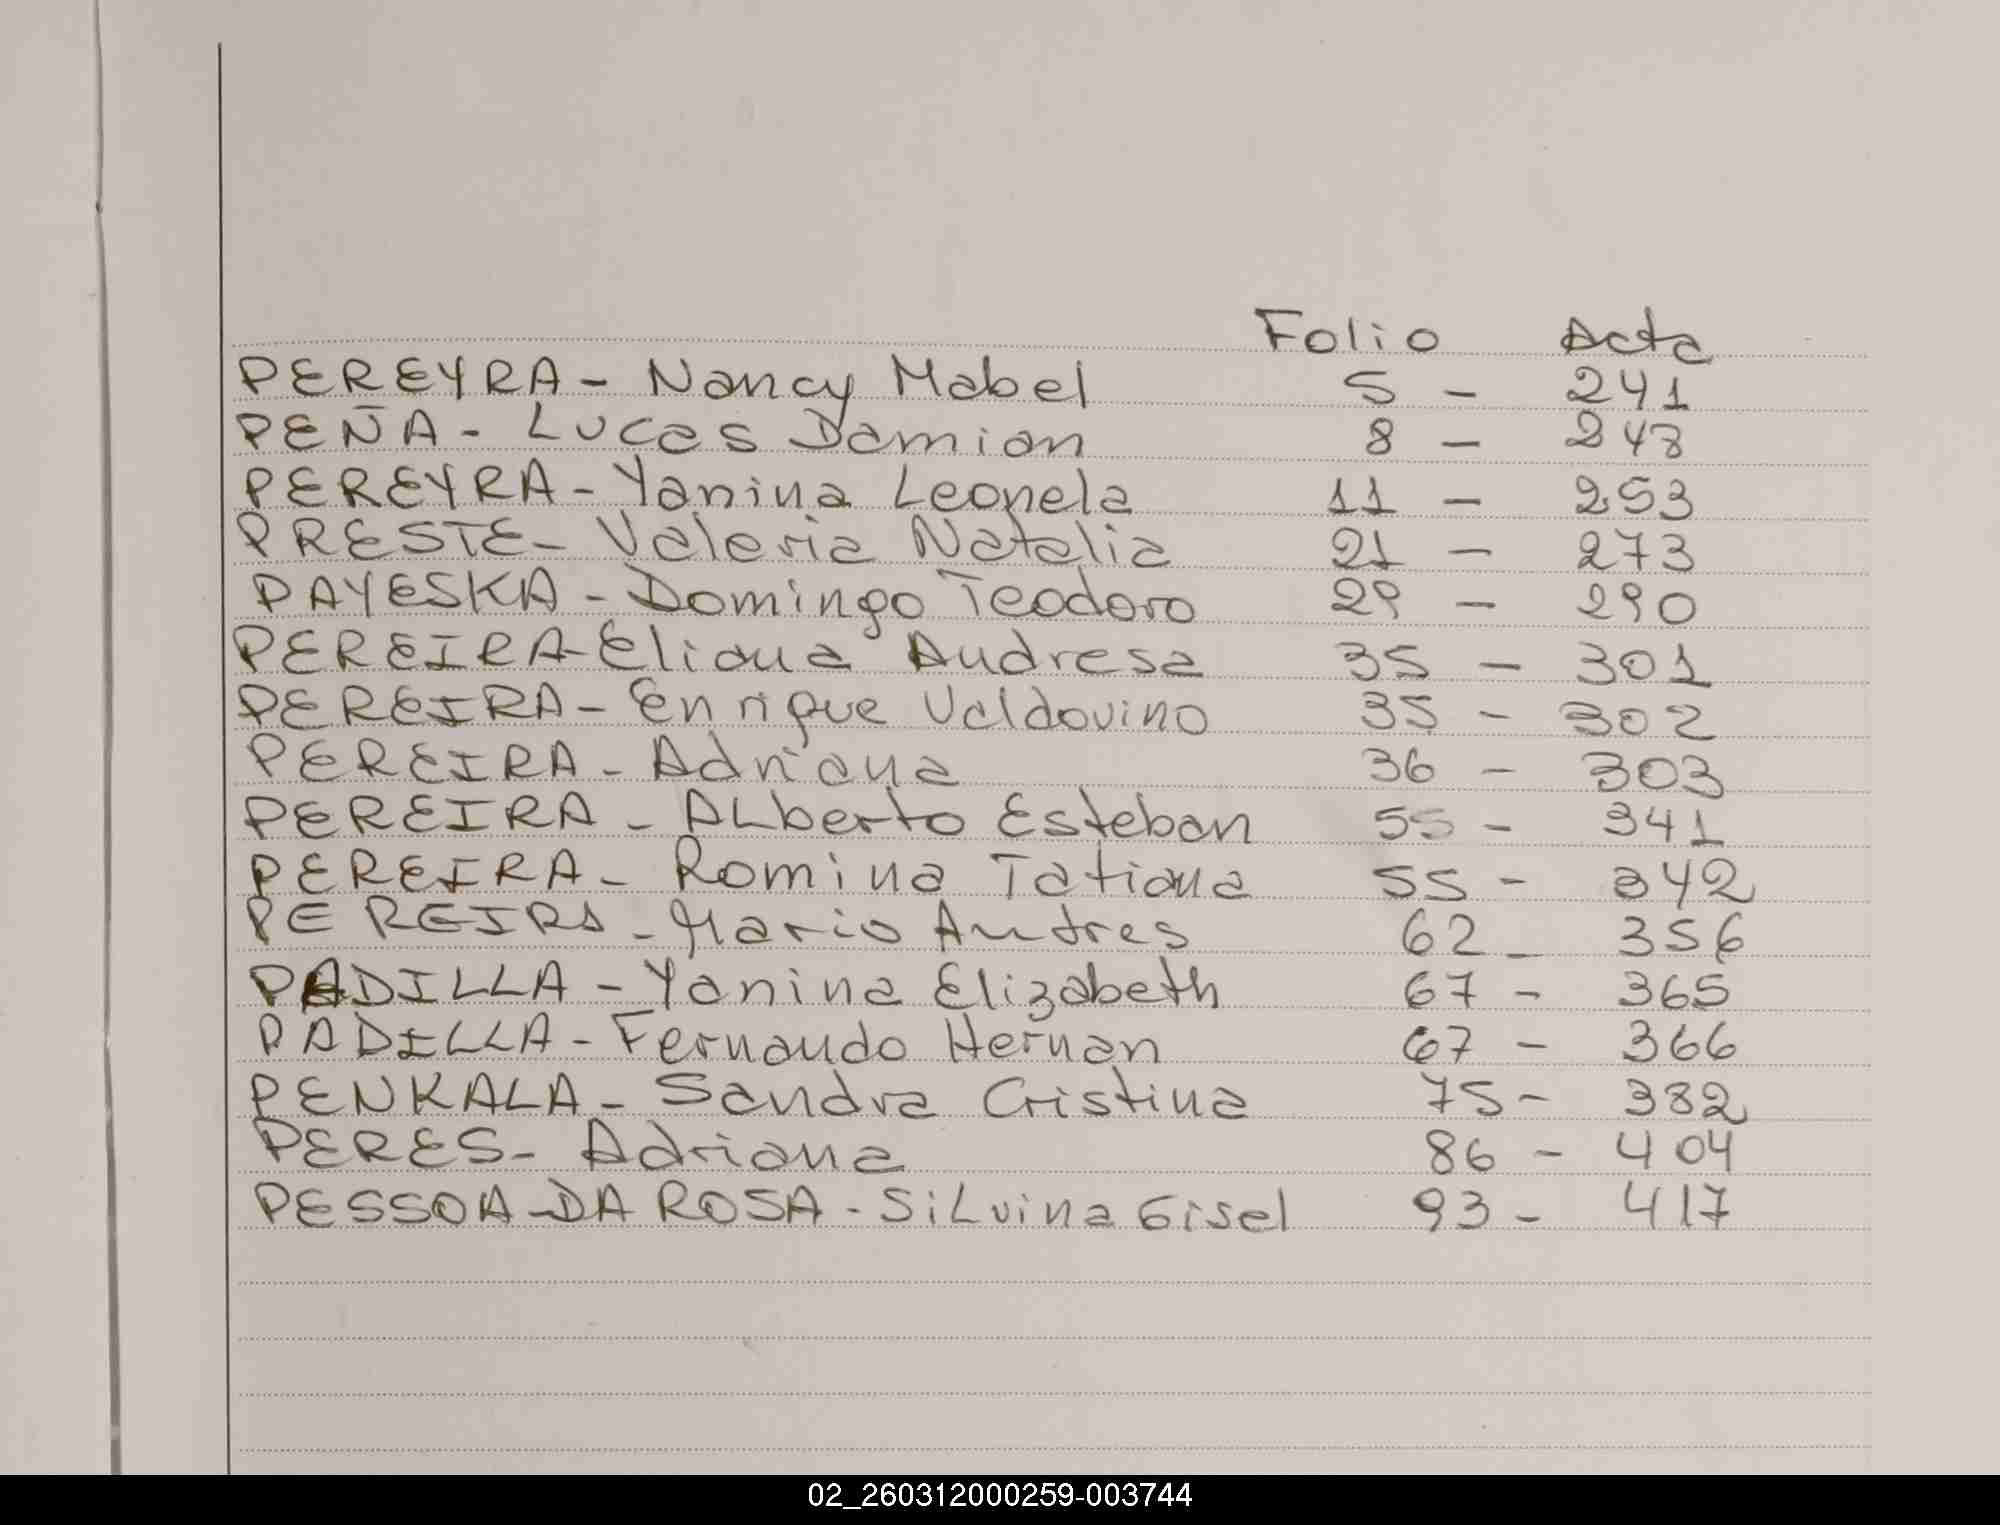 Folio Acta
PEREYRA - Nancy Mabel 5 - 241
PEÑA - Lucas Damian 8 - 248
PEREYRA - Yanina Leonela 11 - 253
PRESTE - Valeria Natalia 21 - 273
PAYESKA - Domingo Teodoro 29 - 290
PEREIRA - Eliana Andresa 35 - 301
PEREIRA - Enrique Valdovino 35 - 302
PEREIRA - Adriana 36 - 303
PEREIRA - Alberto Esteban 55 - 341
PEREIRA - Romina Tatiana 55 - 342
PEREIRA - Mario Andres 62 - 356
PADILLA - Yanina Elizabeth 67 - 365
PADILLA - Fernando Hernan 67 - 366
PENKALA - Sandra Cristina 75 - 382
PERES - Adriana 86 - 404
PESSOA - DA ROSA - Silvina Gisel 93 - 417
02_260312000259-003744